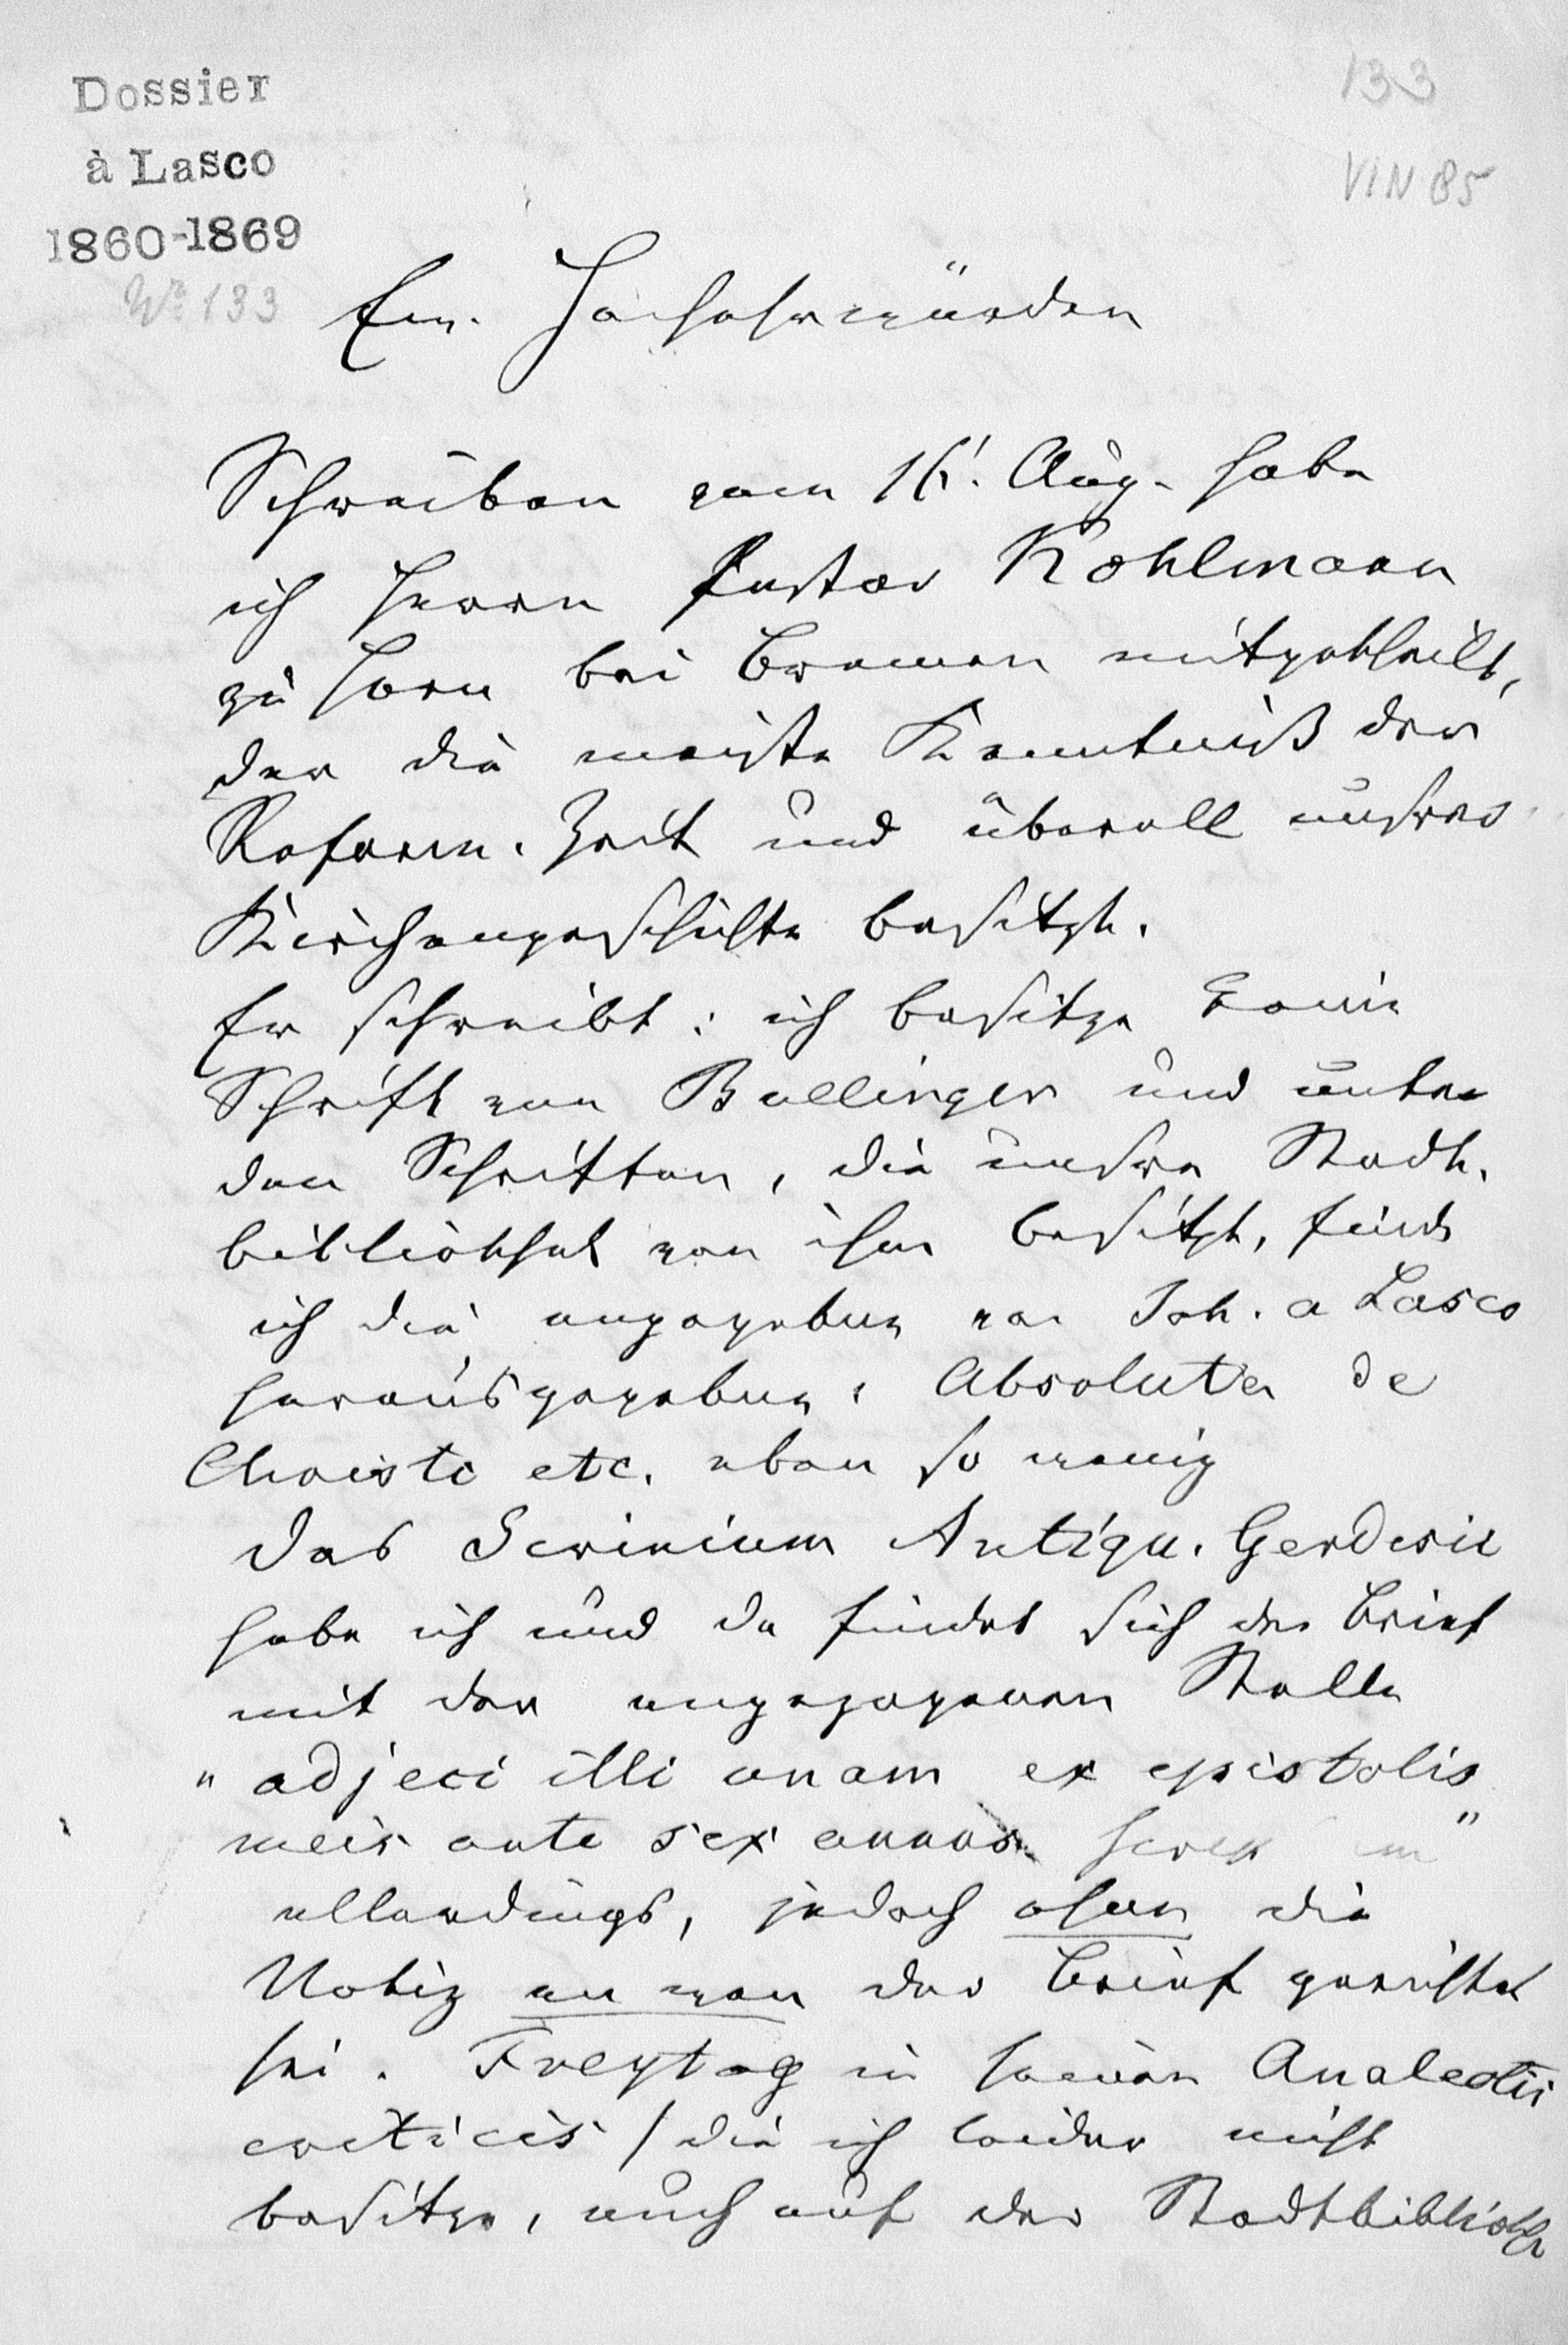 Dossier
à Lasco
1860-1869
No 133
133
VIN 85
Ew. Hochehrwürden
Schreiben vom 16. Aug. habe
ich Herrn Pastor Kohlmann
zu Horn bei Bremen mitgetheilt,
der die meiste Kenntniß der
Reform. Zeit und überall unsrer
Kirchengeschichte besitzt.
Er schreibt: ich besitze keine
Schrift von Bullinger und unter
den Schriften, die unsre Stadt.
bibliothek von ihm besitzt, find
ich die angegebene von Joh. a Lasco
herausgegebene: Absoluta de
Christi etc. eben so wenig
das Scrinium Antiqu. Gerdesii
habe ich und da findet sich der Brief
mit der angezogenen Stelle
"adjeci illi unam ex epistolis
meis ante sex annos "
allerdings, jedoch ohne die
Notiz an wen der Brief gerichtet
sei. Freytag in seinen Analectis
criticis / die ich leider nicht
besitze, auch auf der Stadtbiblioth